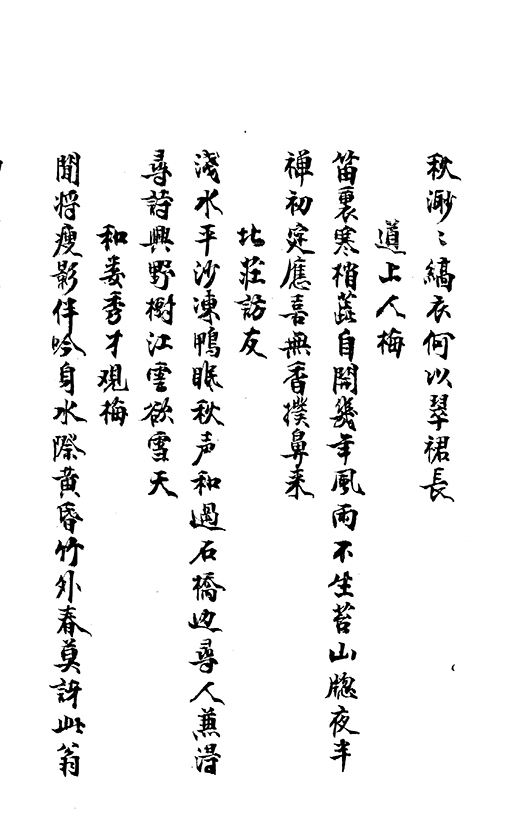 秋渺〻縞衣何以翠裙長
道上人梅
笛裏寒梢蕋自開幾年風雨不生苔山牕夜半
禅初定應喜無香撲鼻来
北莊訪友
淺水平沙凍鴨眠秋声和過石橋边尋人兼得
尋詩興野樹江雲欲雪天
和婁秀才觀梅
閒将瘦影伴吟身水際黄昏竹外春莫訝此翁